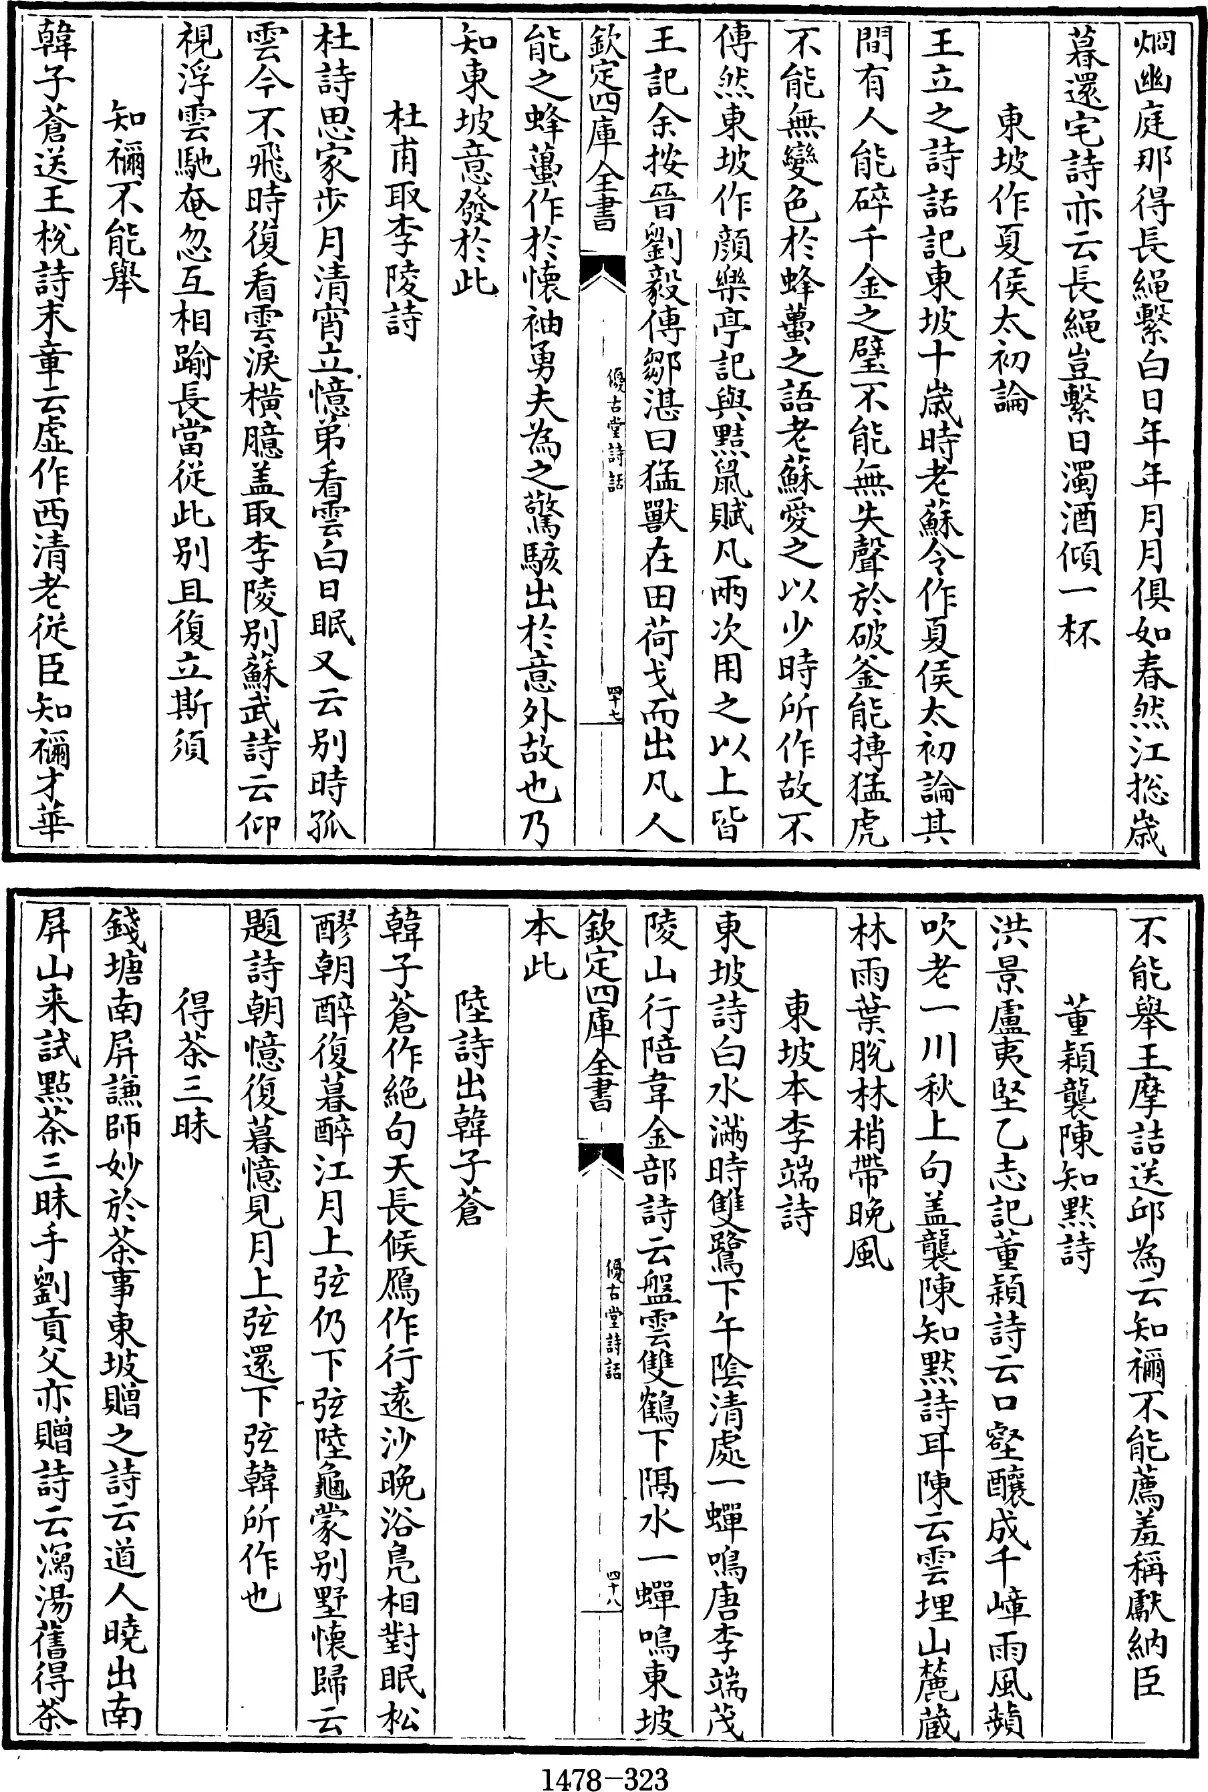 烱幽庭那得長繩繫白日年年月月俱如春然江揔歳
暮還宅詩亦云長繩豈繫日濁酒傾一杯
東坡作夏侯太初論
王立之詩話記東坡十歳時老蘇令作夏侯太初論其
間有人能碎千金之璧不能無失聲於破釜能搏猛虎
不能無變色於蜂蠆之語老蘇愛之以少時所作故不
傳然東坡作顔樂亭記與黠䑕賦凡兩次用之以上皆
王記余按晉劉毅傳鄒湛曰猛獸在田荷戈而出凡人
欽定四庫全書
優古堂詩話
四十七
能之蜂蠆作於懷袖勇夫為之驚駭出於意外故也乃
知東坡意發於此
杜甫取李陵詩
杜詩思家步月清宵立憶弟看雲白日眠又云别時孤
雲今不飛時復看雲淚横臆盖取李陵别蘇武詩云仰
視浮雲馳奄忽互相踰長當從此别且復立斯須
知禰不能舉
韓子蒼送王梲詩末章云虚作西清老從臣知禰才華
不能舉王摩詰送邱為云知禰不能薦羞稱獻納臣
董穎襲陳知黙詩
洪景盧夷堅乙志記董穎詩云口壑釀成千嶂雨風蘋
吹老一川秋上句盖襲陳知黙詩耳陳云雲埋山麓蔵
林雨葉脫林梢帶晚風
東坡本李端詩
東坡詩白水滿時雙鷺下午陰清處一蟬鳴唐李端茂
陵山行陪韋金部詩云盤雲雙鶴下隔水一蟬鳴東坡
欽定四庫全書
優古堂詩話
四十八
本此
陸詩出韓子蒼
韓子蒼作絶句天長候鴈作行逺沙晚浴鳧相對眠松
醪朝醉復暮醉江月上弦仍下弦陸龜蒙别墅懷歸云
題詩朝憶復暮憶見月上弦還下弦韓所作也
得茶三昧
錢塘南屏謙師妙於茶事東坡贈之詩云道人曉出南
屏山来試點茶三昧手劉貢父亦贈詩云瀉湯舊得茶
1478-323